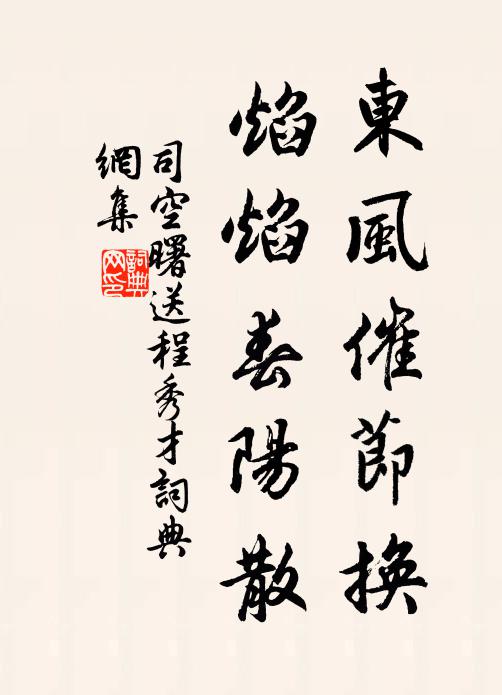 東風催節換
焰焰春陽散
司空曙送程秀才詞典
網集
詞典
网印